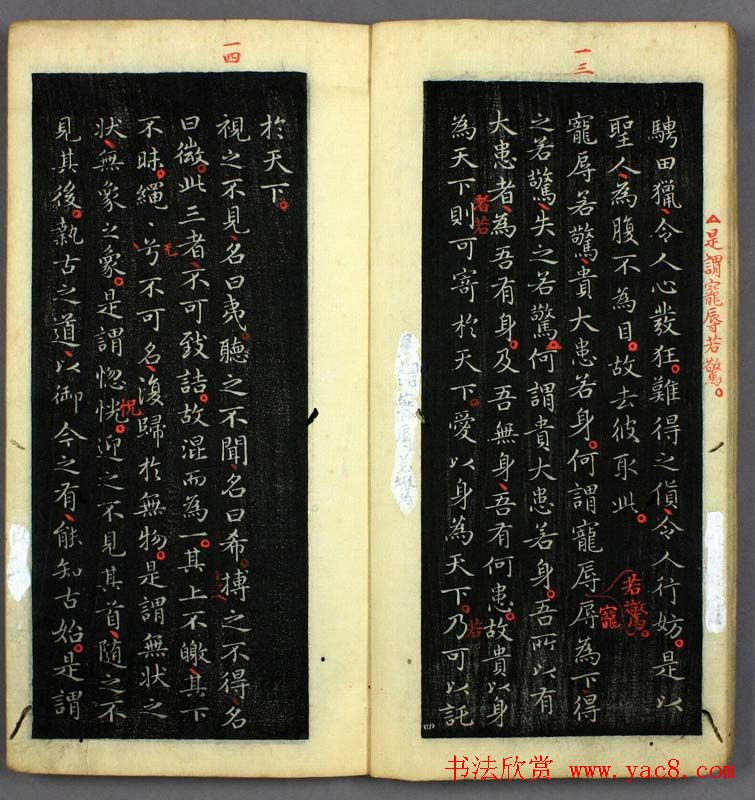 一三
△是謂寵辱若驚。
騁田獵、令人心發狂。難得之貨、令人行妨。是以
聖人、為腹不為目。故去彼取此。
寵辱若驚、貴大患若身。何謂寵辱辱為下、得
若驚。寵
之若驚、失之若驚。何謂貴大患若身。吾所以有
大患者、為吾有身。及吾無身、吾有何患。故貴以身
者若
為天下則可寄於天下。愛以身為天下。乃可以託
若
是謂寵辱若驚
一四
於天下。
視之不見、名曰夷。聽之不聞、名曰希。搏之不得、名
曰微。此三者、不可致詰。故混而為一。其上不皦、其下
不昧。繩〻兮不可名、復歸於無物。是謂無狀之
无
狀、無象之象。是謂惚恍。迎之不見其首、隨之不
怳
見其後。執古之道、以御今之有、能知古始。是謂
书法欣赏 www.yac8.com